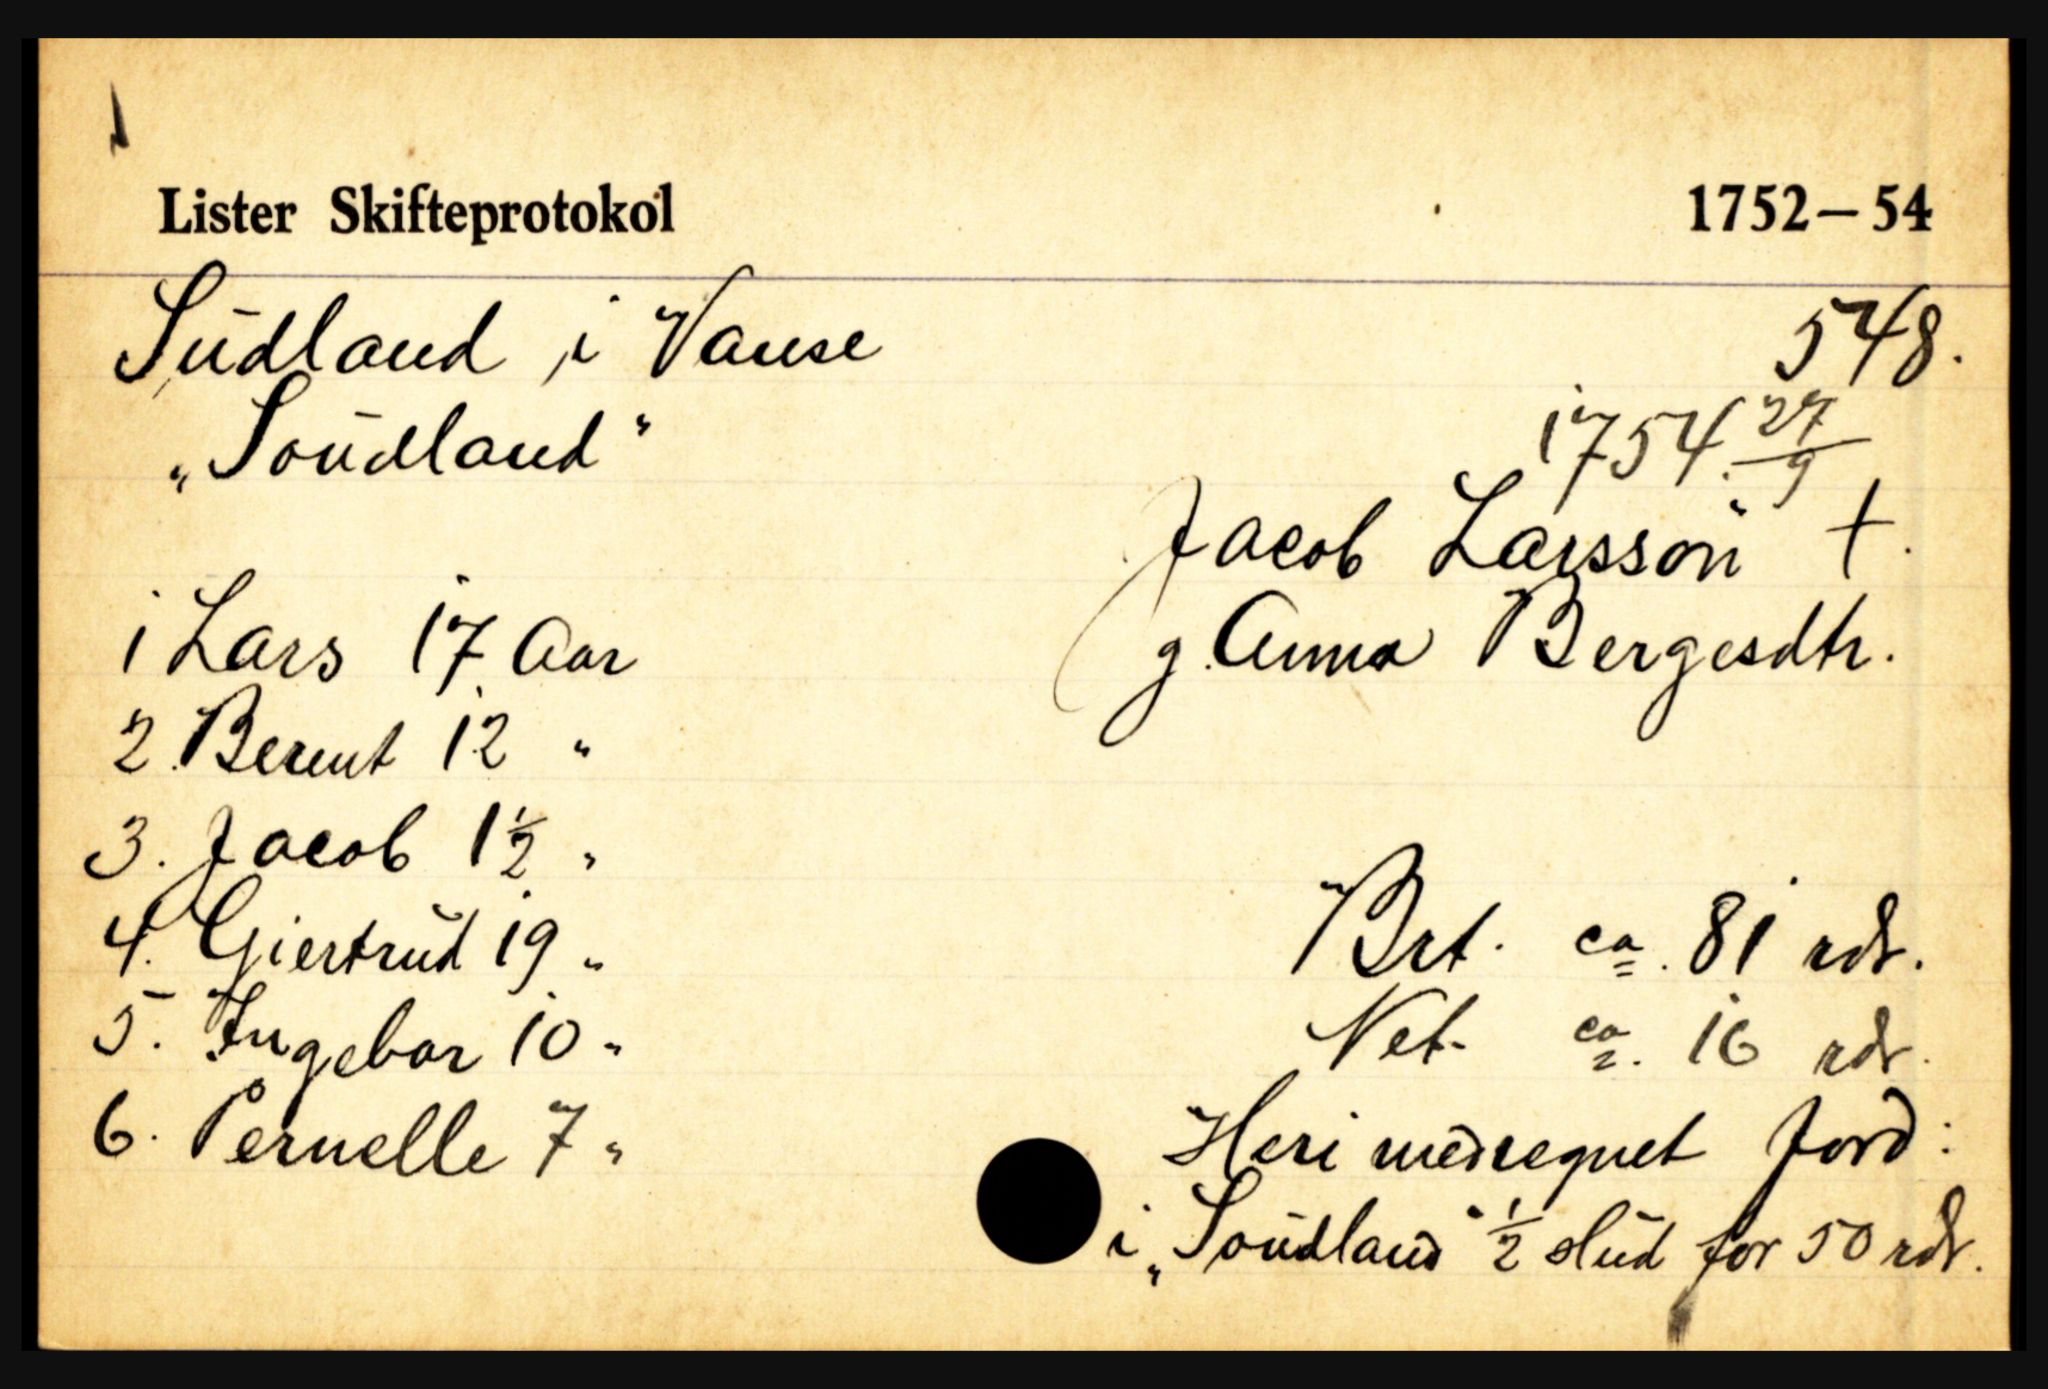 Lister Skifteprotokol 1752–54
Sudland i Vanse 548.
„Soudland“ 1754 27/9
Jacob Larsson †.
g. Anna Bergesdtr.
1 Lars 17 Aar
2. Berent 12 "
3. Jacob 1½ "
4. Giertrud 19 "
5. Ingebor 10 "
6. Pernelle 7 "
Brt. ca. 81 rdr.
Net. ca. 16 rdr.
Heri medregnet Jord:
i „Soudland“ ½ slud for 50 rdr.